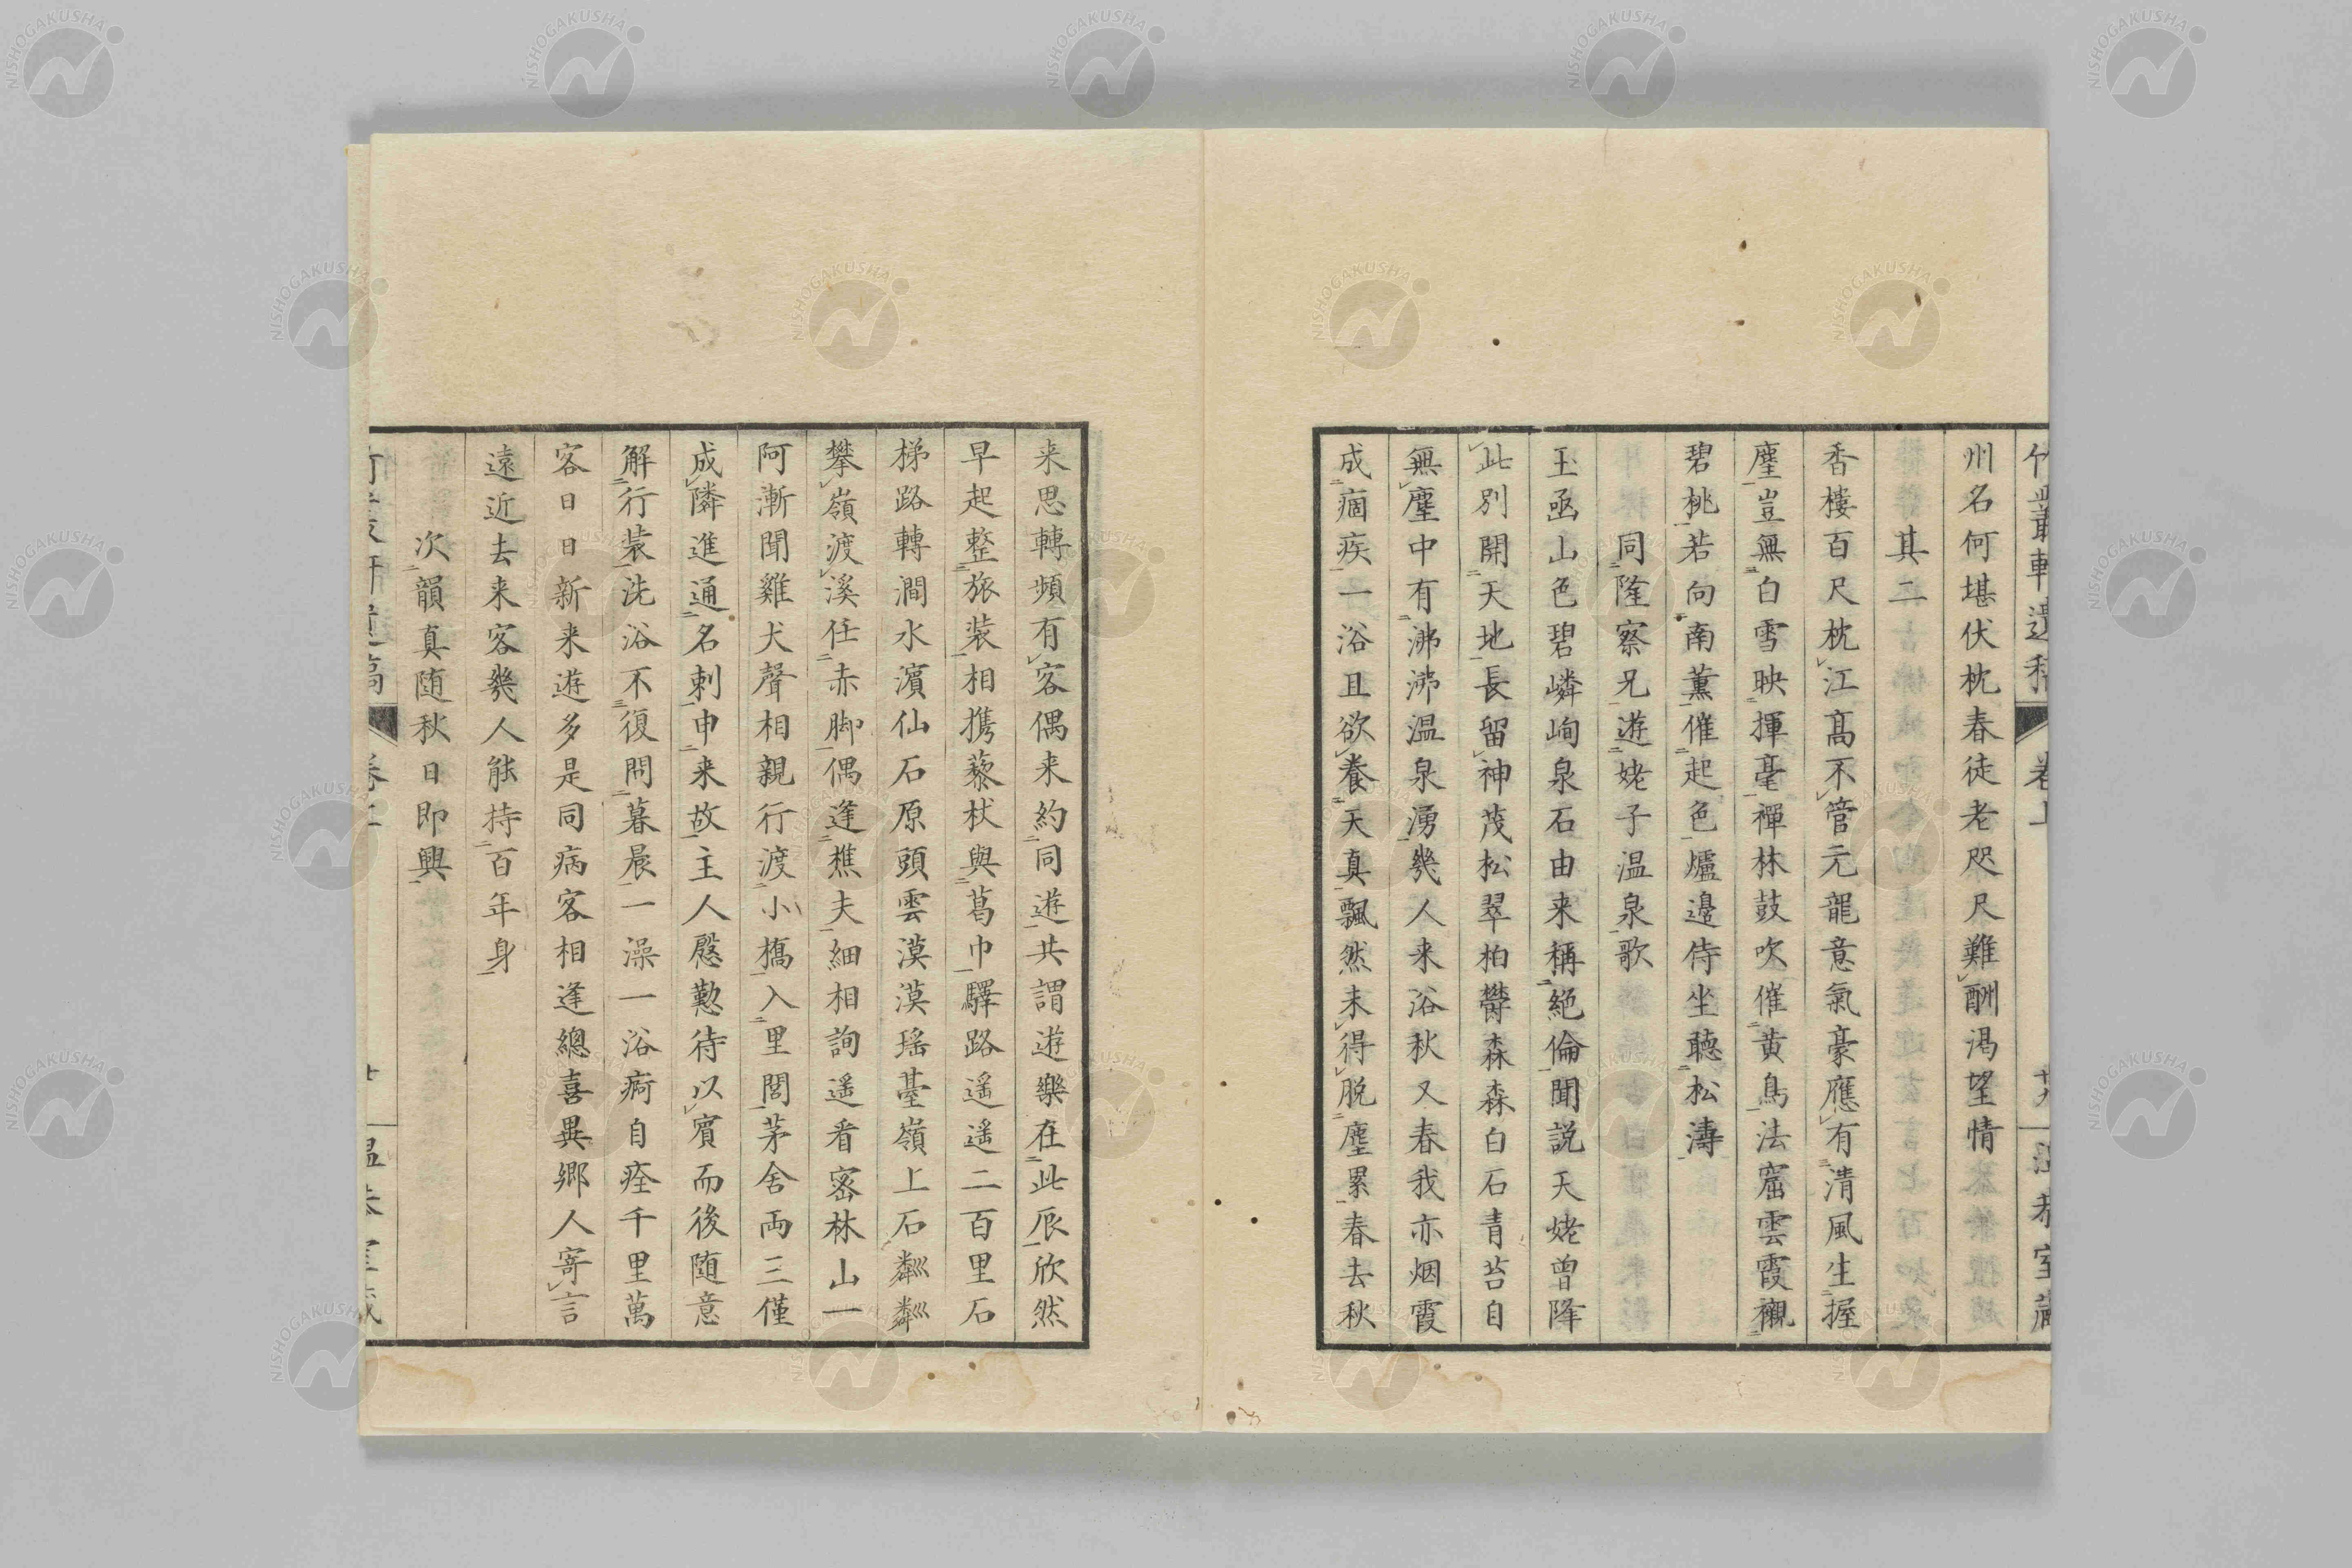 州名何堪伏枕春徒老咫尺難酬渇望情
其二
香樓百尺枕江高不管元龍意氣豪應有清風生握
麈豈無白雪映揮毫禪林鼓吹催黄鳥法窟雲霞襯
碧桃若向南薫催起色爐邉侍坐聴松濤
同隆察兄遊姥子温泉歌
玉函山色碧嶙峋泉石由来稱絶倫聞説天姥曾降
此別開天地長留神茂松翠柏欝森森白石青苔自
無塵中有沸沸温泉湧幾人来浴秋又春我亦烟霞
成痼疾一浴且欲養天真飄然未得脱塵累春去秋
来思轉頻有客偶来約同遊共謂遊樂在此辰欣然
早起整旅装相携藜杖與葛巾驛路遥遥二百里石
梯路轉澗水濱仙石原頭雲漠漠瑶臺嶺上石粼粼
攀嶺渡溪任赤脚偶逢樵夫細相詢遥看密林山一
阿漸聞雞犬聲相親行渡小橋入里閭茅舎両三僅
成隣進通名刺申来故主人慇懃待以賓而後随意
解行装洗浴不復問暮晨一澡一浴痾自痊千里萬
客日日新来遊多是同病客相逢總喜異郷人寄言
遠近去来客幾人能持百年身
次韻真随秋日即興
竹叢軒遺稿
卷上
十九
温恭室藏